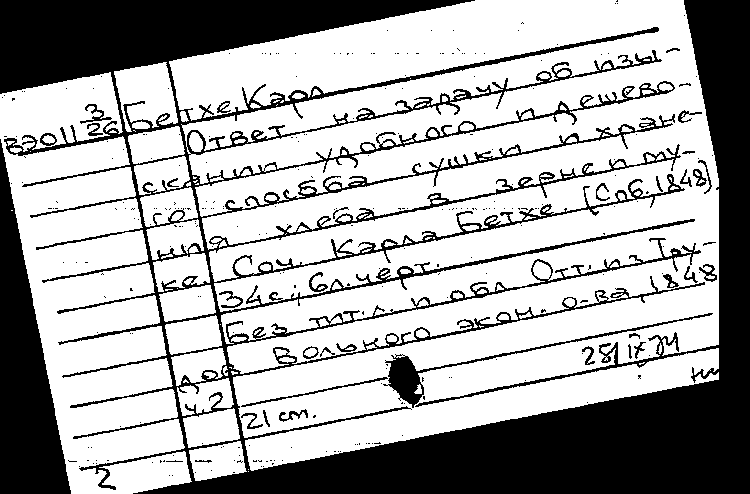 ВЭО11 3/26 Бетхе, Карл
Ответ на задачу об изы-
скании удобного и дешево-
го способа сушки и хране-
ния хлеба в зерне и му-
ке. Соч. Карла Бетхе. [Спб., 1848].
34с.; 6л. черт.
Без тит. л. и обл. Отт. из Тру-
дов Вольного экон. о-ва, 1848
ч. 2
21 cm.
28/IX 74
2